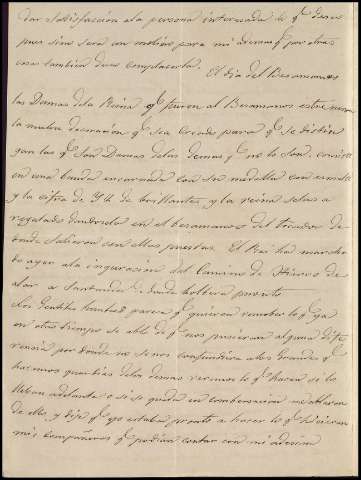 dar satisfacción a la persona interesada lo qe deseo
pues sino será un motivo para mi además qe por otras
cosas tambien deseo complacerla.
El dia del Besamanos
las Damas de la Reina qe fueron al Besamanos estrenaron
la nueva decoracion qe sea creado para qe se distin
gan las qe son Damas de las demas qe no lo son, consiste
en una banda encarnada con su medalla con esmalte
y la cifra de Y 2ª de brillantes, y la reina selas a
regalado dandosela en el besamanos del tocador de
donde salieron con ellas puestas. El Rei ha marcha
do ayer a la inguracion del Camino de Hierro de
Alar a Santander donde bolbera pronto
Los Gentiles hombres parece qe quieren remober lo qe ya
en otro tiempo se ablo de qe nos pusieran alguna dife
rencia por donde no se nos confundiera a los Grandes qe
hacemos guardias de los demas veremos lo qe hacen si lo
lleban adelante o se queda en combersacion me ablaron
de ello, y dije qe yo estaba pronto a hacer lo qe hicieran
mis compañeros qe podian contar con mi adesion